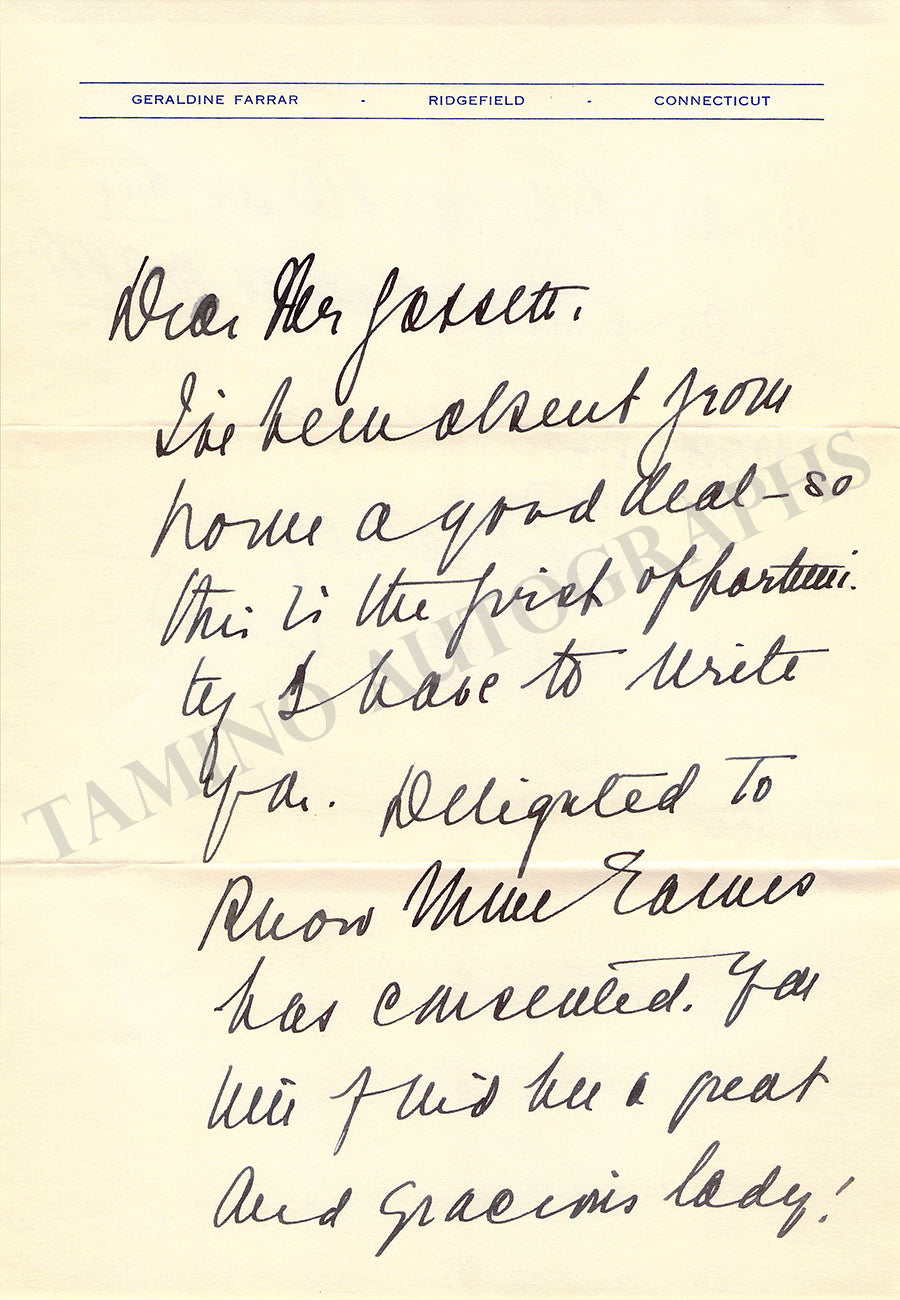 GERALDINE FARRAR - RIDGEFIELD - CONNECTICUT
Dear Mr Gassett.
I've been absent from
home a good deal – so
this is the first opportuni-
ty I have to write
you. Delighted to
know Mme Eames
has consented. You
will find her a great
and gracious lady!
TAMINO AUTOGRAPHS